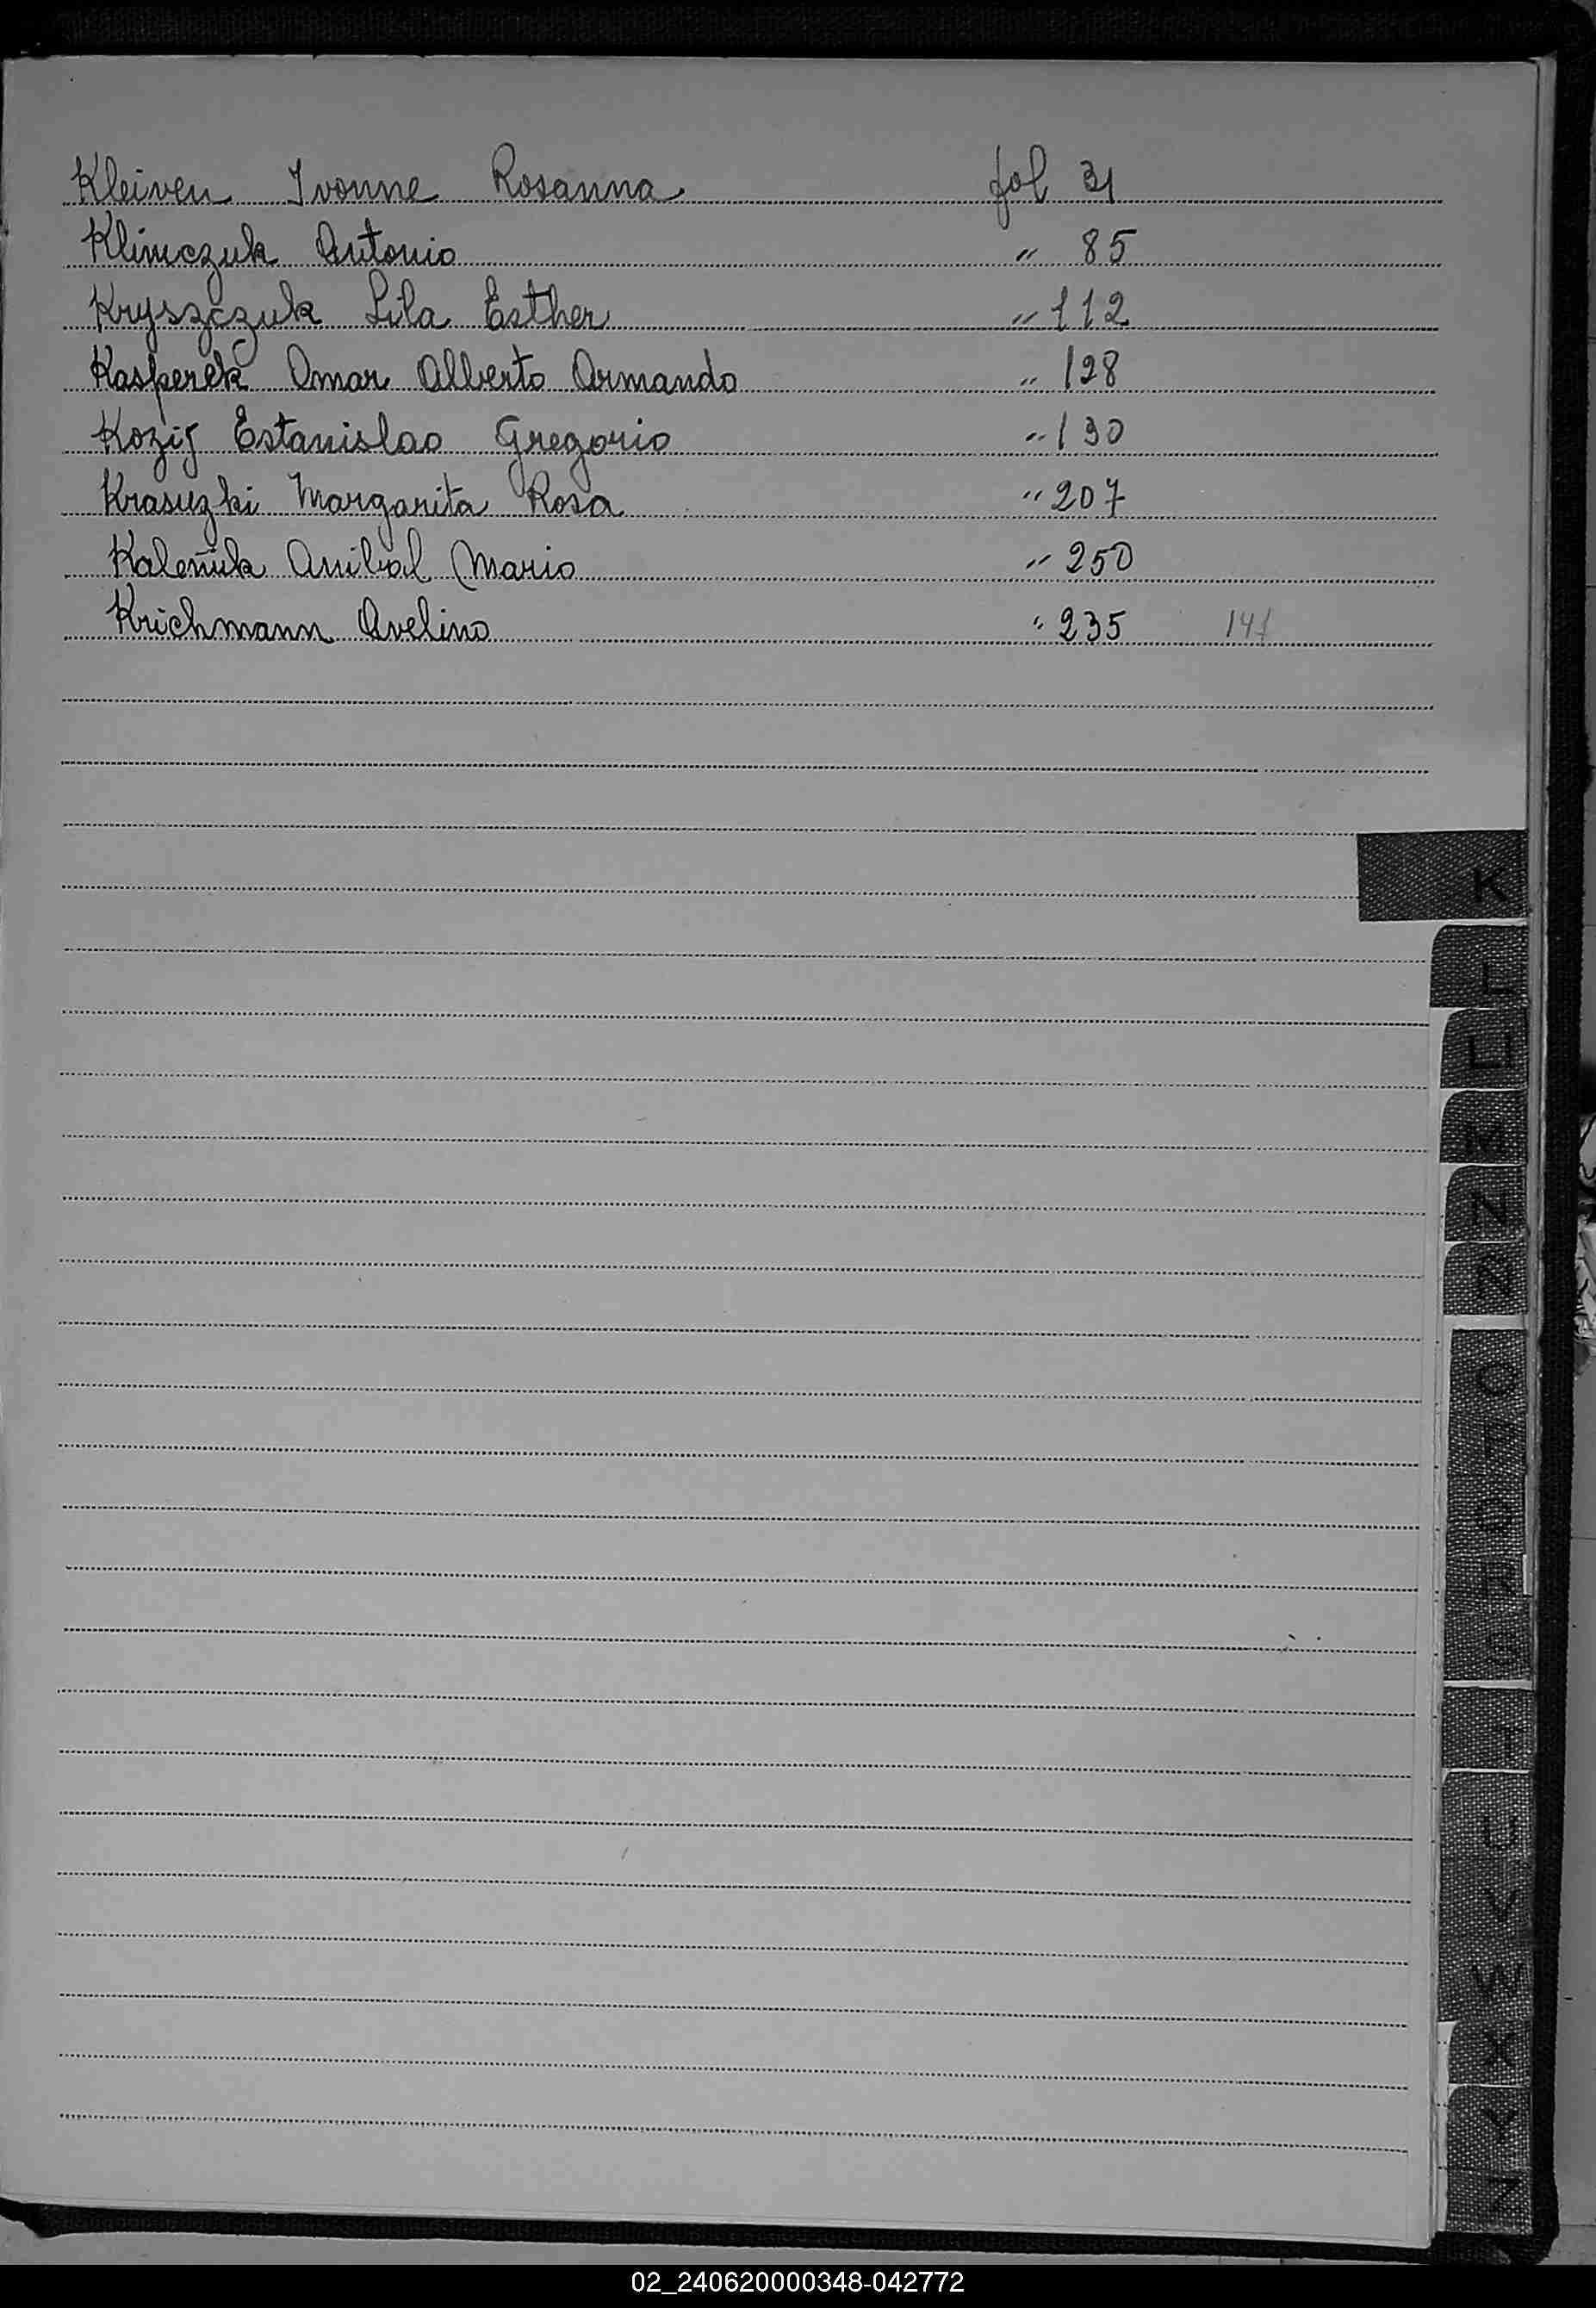 Kleiven Ivonne Rosanna fol 31
Klimczuk Antonio " 85
Kryszczuk Lila Esther " 112
Kasperek Omar Alberto Armando " 128
Kozij Estanislao Gregorio " 130
Krasuzki Margarita Rosa " 207
Kaleñuk Anibal Mario " 250
Krichmann Avelino " 235 141
K
L
LL
M
N
Ñ
O
P
Q
R
S
T
U
V
W
X
Y
Z
02_240620000348-042772